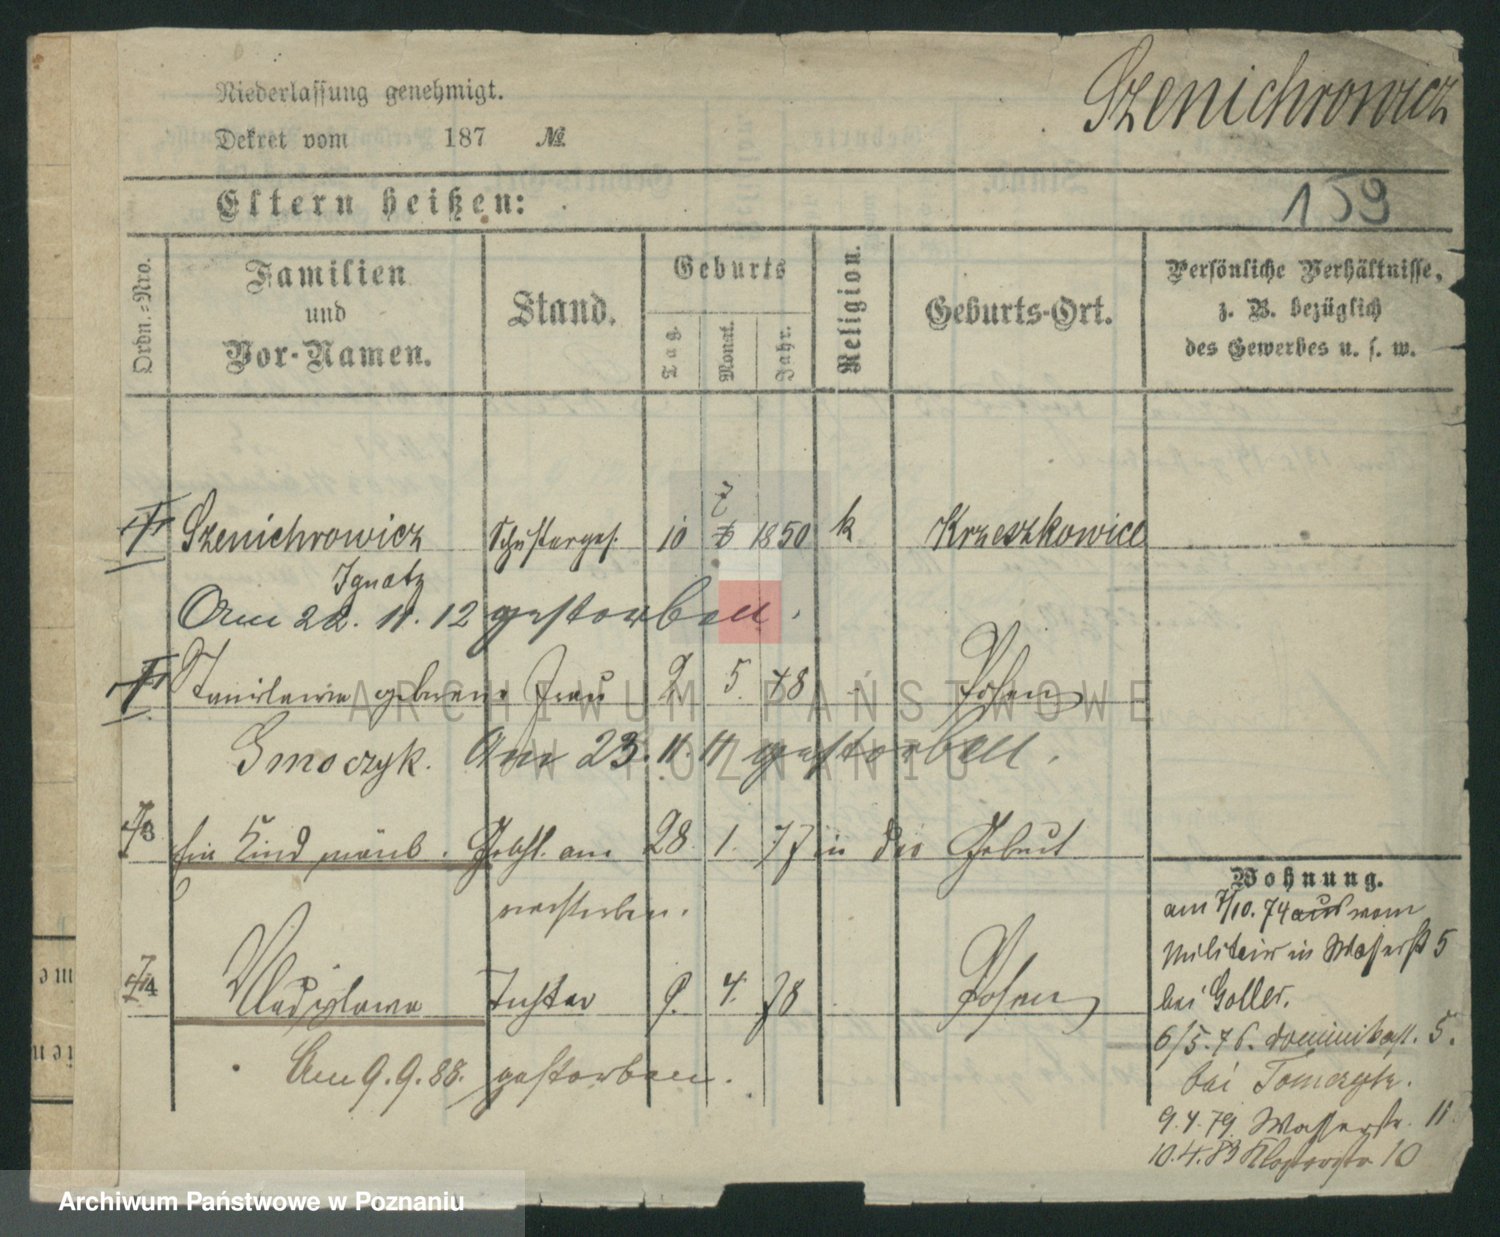 Niederlassung genehmigt.
Szenichrowicz
Dekret vom 187 №
Eltern heißen:
159
Ordn.-Nro.
Familien und Vor-Namen.
Stand.
Geburts
Tag.
Monat.
Jahr.
Religion.
Geburts-Ort.
Persönliche Verhältnisse,
z. B. bezüglich
des Gewerbes u. s. w.
7
Szenichrowicz Schusterges. 10 1850 k Krzeszkowice
Ignatz
Am 22. 11. 12 gestorben.
Stanislawa geborene Frau 2. 5. 48 Posen
Smoczyk. Am 23. 11. 11 gestorben.
3 Ein Kind männl. Gebl. am 28. 1. 77 in der Geburt
verstorben.
4 Wladislawa Tochter 9. 4. 78 Posen
Am 9. 9. 88. gestorben.
Wohnung.
am 7/10. 74 aus vom
Militair in Wasserst 5
bei Goller.
6/5. 76. Dominikast. 5.
bei Tomczyk.
9. 4. 79. Wasserstr. 11.
10. 4. 83 Klosterstr 10
ARCHIWUM PAŃSTWOWE
W POZNANIU
Archiwum Państwowe w Poznaniu